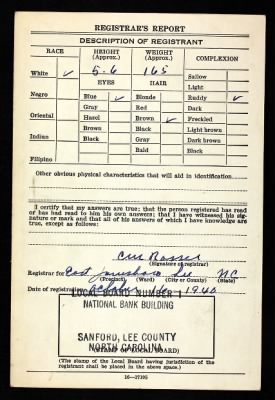 REGISTRAR'S REPORT
DESCRIPTION OF REGISTRANT
RACE HEIGHT (Approx.) WEIGHT (Approx.) COMPLEXION
White ✓ 5-6 165 Sallow
EYES HAIR Light
Negro Blue ✓ Blonde Ruddy ✓
Gray Red Dark
Oriental Hazel Brown ✓ Freckled
Brown Black Light brown
Indian Black Gray Dark brown
Bald Black
Filipino
Other obvious physical characteristics that will aid in identification
I certify that my answers are true; that the person registered has read or has had read to him his own answers; that I have witnessed his sig-
nature or mark and that all of his answers of which I have knowledge are
true, except as follows:
(Signature of registrar)
Registrar for East Lee NC
(Precinct) (Ward) (City or County) (State)
Date of registration 16 1940
LOCAL BOARD NUMBER 1
NATIONAL BANK BUILDING
SANFORD, LEE COUNTY
NORTH CAROLINA
(STAMP OF LOCAL BOARD)
(The stamp of the Local Board having jurisdiction of the
registrant shall be placed in the above space.)
16-17105